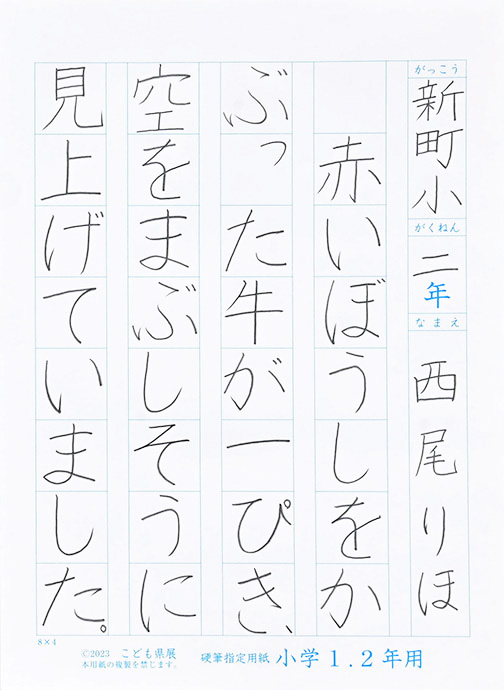 がっこう 新町小 がくねん 二年 なまえ 西尾りほ
赤いぼうしをか
ぶった牛が一ぴき、
空をまぶしそうに
見上げていました。
8×4
©2023 こども県展
本用紙の複製を禁じます。
硬筆指定用紙 小学1.2年用